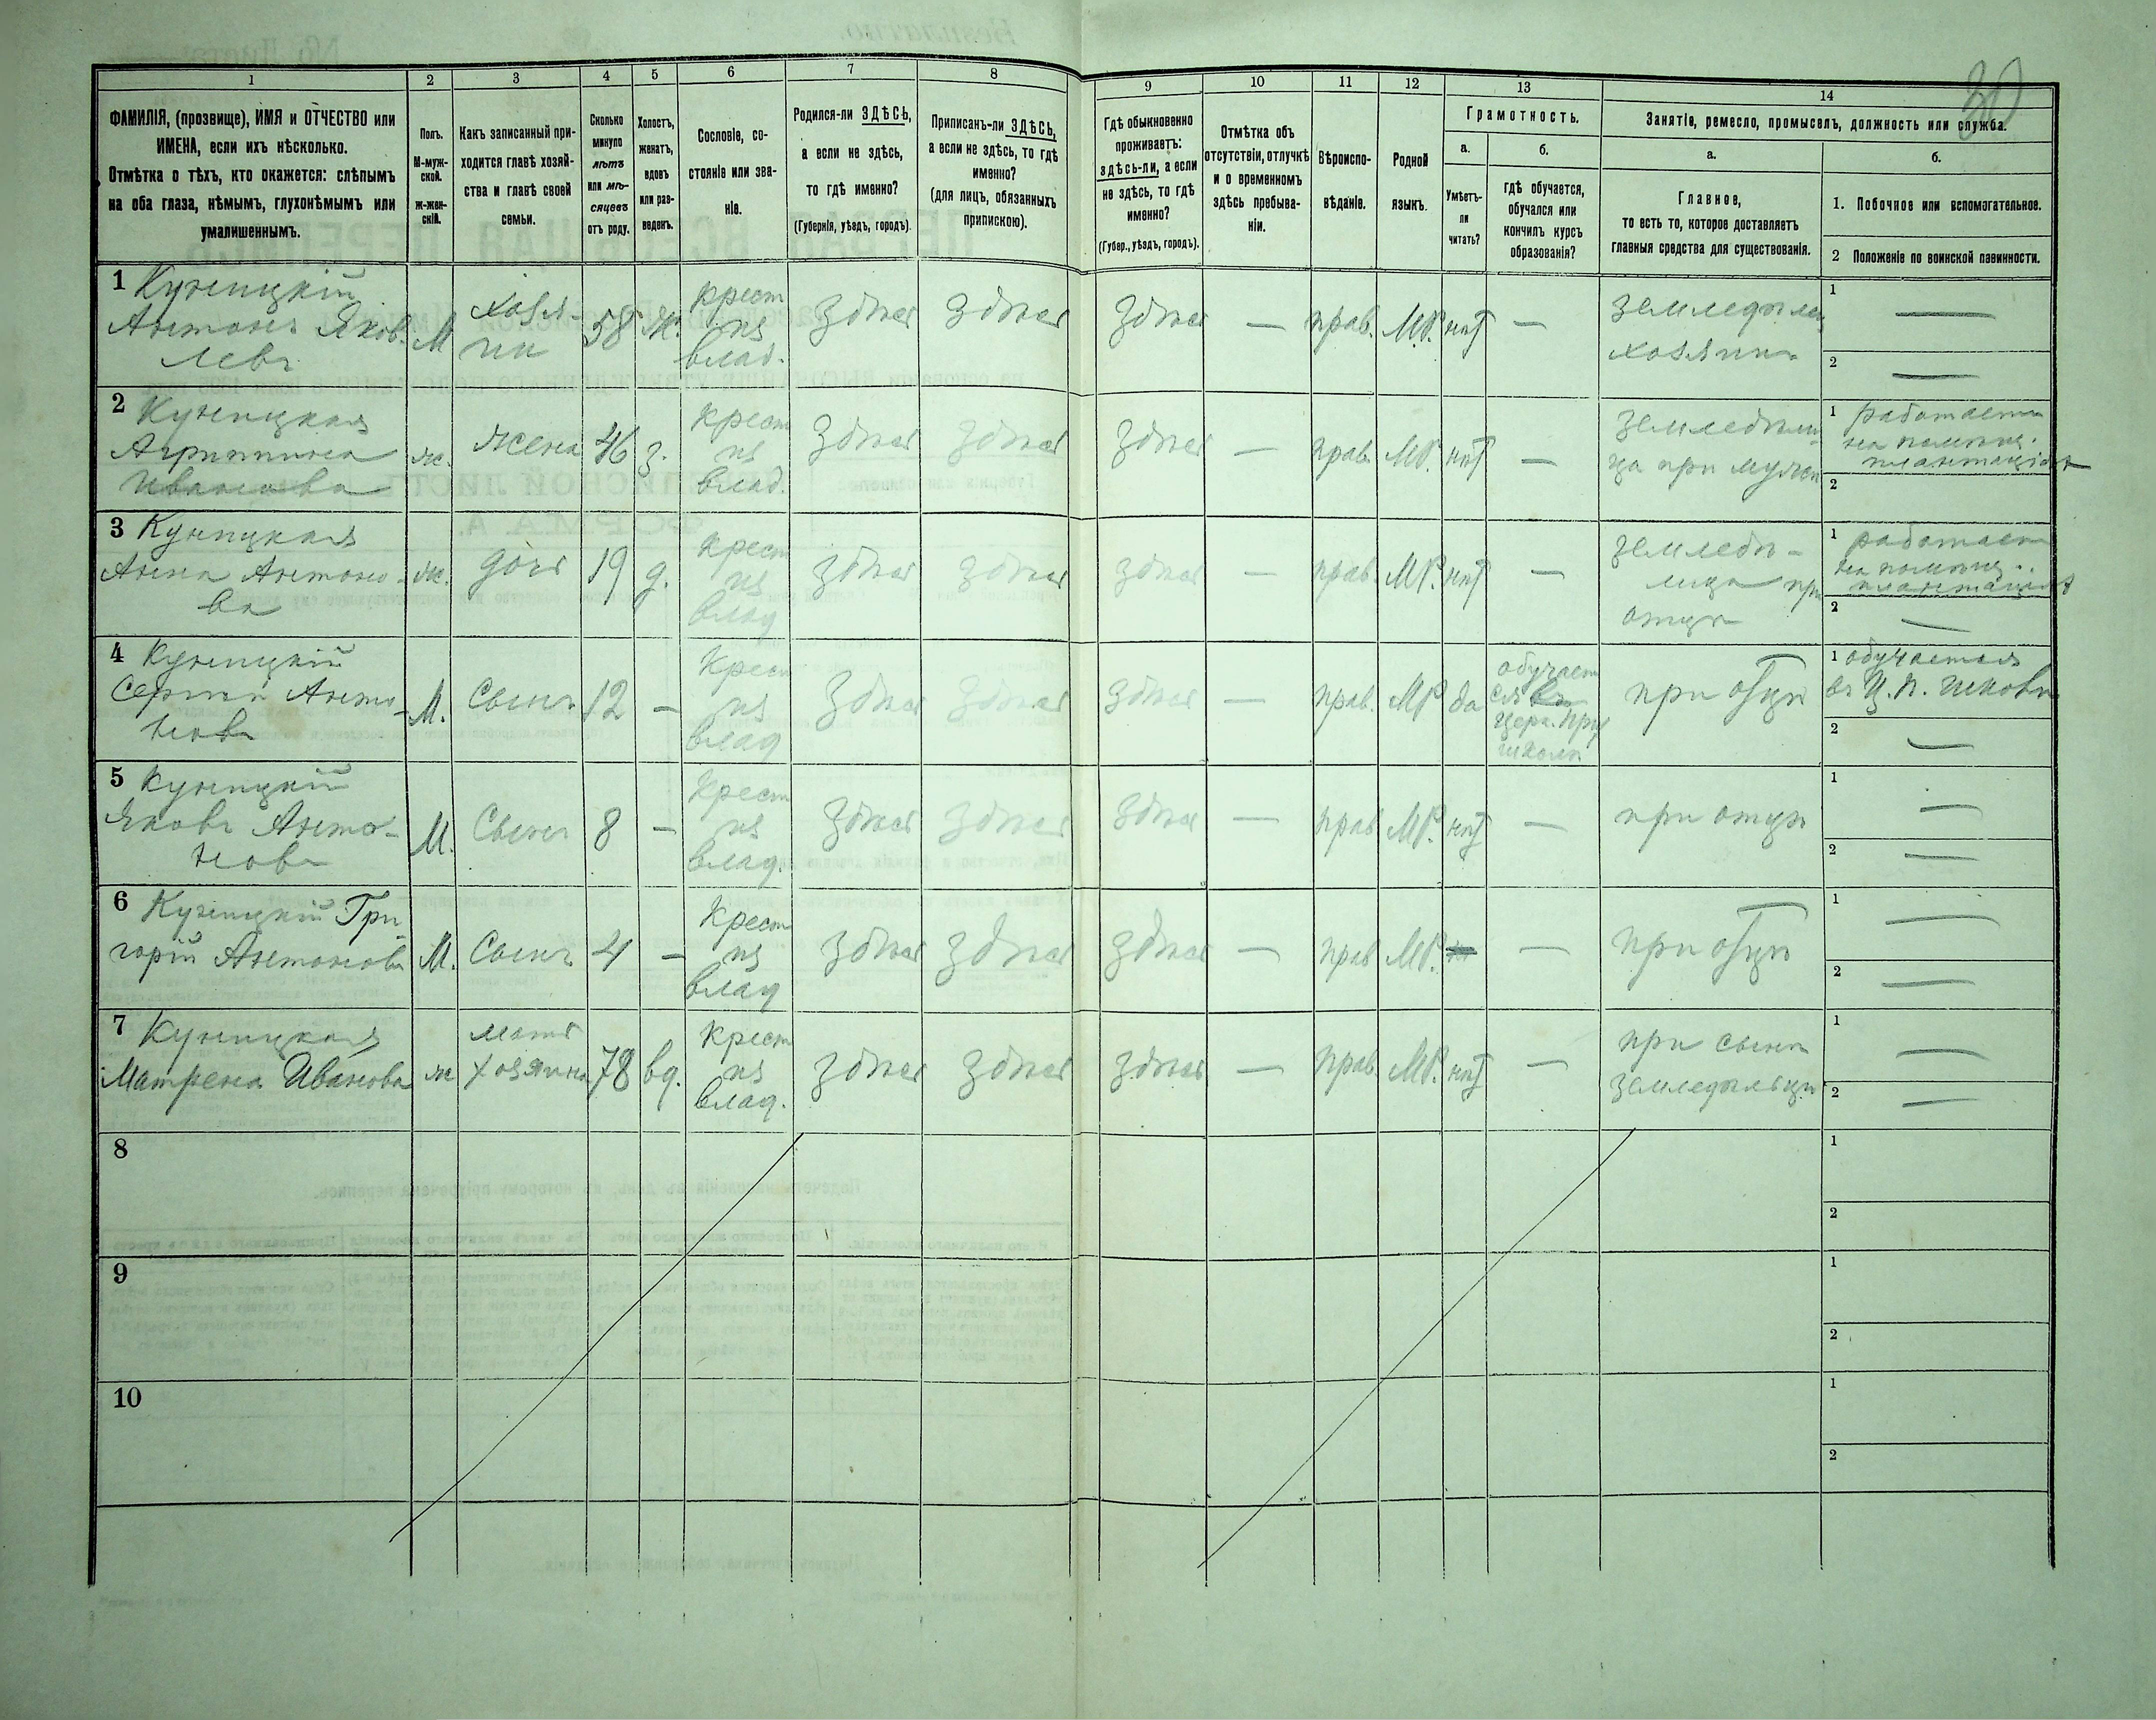 30
1 2 3 4 5 6 7 8 9 10 11 12 13 14
ФАМИЛІЯ, (прозвище), ИМЯ и ОТЧЕСТВО или
ИМЕНА, если ихъ нѣсколько.
Отмѣтка о тѣхъ, кто окажется: слѣпымъ
на оба глаза, нѣмымъ, глухонѣмымъ или
умалишеннымъ.
Полъ.
М-муж-
ской.
ж-жен-
скій.
Какъ записанный при-
ходится главѣ хозяй-
ства и главѣ своей
семьи.
Сколько
минуло
лѣтъ
или мѣ-
сяцевъ
отъ роду.
Холостъ,
женатъ,
вдовъ
или раз-
веденъ.
Сословіе, со-
стояніе или зва-
ніе.
Родился-ли ЗДѢСЬ,
а если не здѣсь,
то гдѣ именно?
(Губернія, уѣздъ, городъ).
Приписанъ-ли ЗДѢСЬ,
а если не здѣсь, то гдѣ
именно?
(для лицъ, обязанныхъ
припискою).
Гдѣ обыкновенно
проживаетъ:
здѣсь-ли, а если
не здѣсь, то гдѣ
именно?
(Губер., уѣздъ, городъ).
Отмѣтка объ
отсутствіи, отлучкѣ
и о временномъ
здѣсь пребыва-
ніи.
Вѣроиспо-
вѣданіе.
Родной
языкъ.
Грамотность.
а.
Умѣетъ-
ли
читать?
б.
гдѣ обучается,
обучался или
кончилъ курсъ
образованія?
Занятіе, ремесло, промыселъ, должность или служба.
а.
Главное,
то есть то, которое доставляетъ
главныя средства для существованія.
б.
1. Побочное или вспомогательное.
2 Положеніе по воинской павинности.
1 Куницкій
Антонъ Яков-
левъ
М
хозя-
ин
58
Ж.
крест
из
влад.
здѣсь
здѣсь
здѣсь
—
прав.
МР.
нѣт
—
земледѣлец
хозяинъ
1 —
2 —
2 Куницкая
Агриппина
Иванова
ж.
жена
46
з.
крест
из
влад.
здѣсь
здѣсь
здѣсь
—
прав.
МР.
нѣт
—
земледѣли-
ца при мужѣ
1 работаетъ
на помѣщ.
плантаціях
2
3 Куницкая
Анна Антоно-
ва
ж.
дочь
19
д.
крест
из
влад
здѣсь
здѣсь
здѣсь
—
прав.
МР.
нѣт
—
земледѣ-
лица при
отцѣ
1 работает
на помѣщ.
плантаціях
2 —
4 Куницкій
Сергѣй Анто-
новъ
М.
Сынъ
12
—
Крест
из
влад
здѣсь
здѣсь
здѣсь
—
прав.
МР
да
обучает
ся въ
церк. прих
школѣ
при отцѣ
1 обучается
въ Ц. П. школѣ
2 —
5 Куницкій
Яковъ Анто-
новъ
М.
Сынъ
8
—
Крест
из
влад.
здѣсь
здѣсь
здѣсь
—
прав
МР.
нѣт
—
при отцѣ
1 —
2 —
6 Куницкій Гри-
горій Антоновъ
М.
Сынъ
4
—
Крест
из
влад
здѣсь
здѣсь
здѣсь
—
прав
МР.
—
при отцѣ
1 —
2 —
7 Куницкая
Матрена Иванова
ж
мать
хозяина
78
вд.
Крест
из
влад.
здѣсь
здѣсь
здѣсь
—
прав.
МР.
нѣт
—
при сынѣ
земледѣльцѣ
1 —
2 —
8
1
2
9
1
2
10
1
2